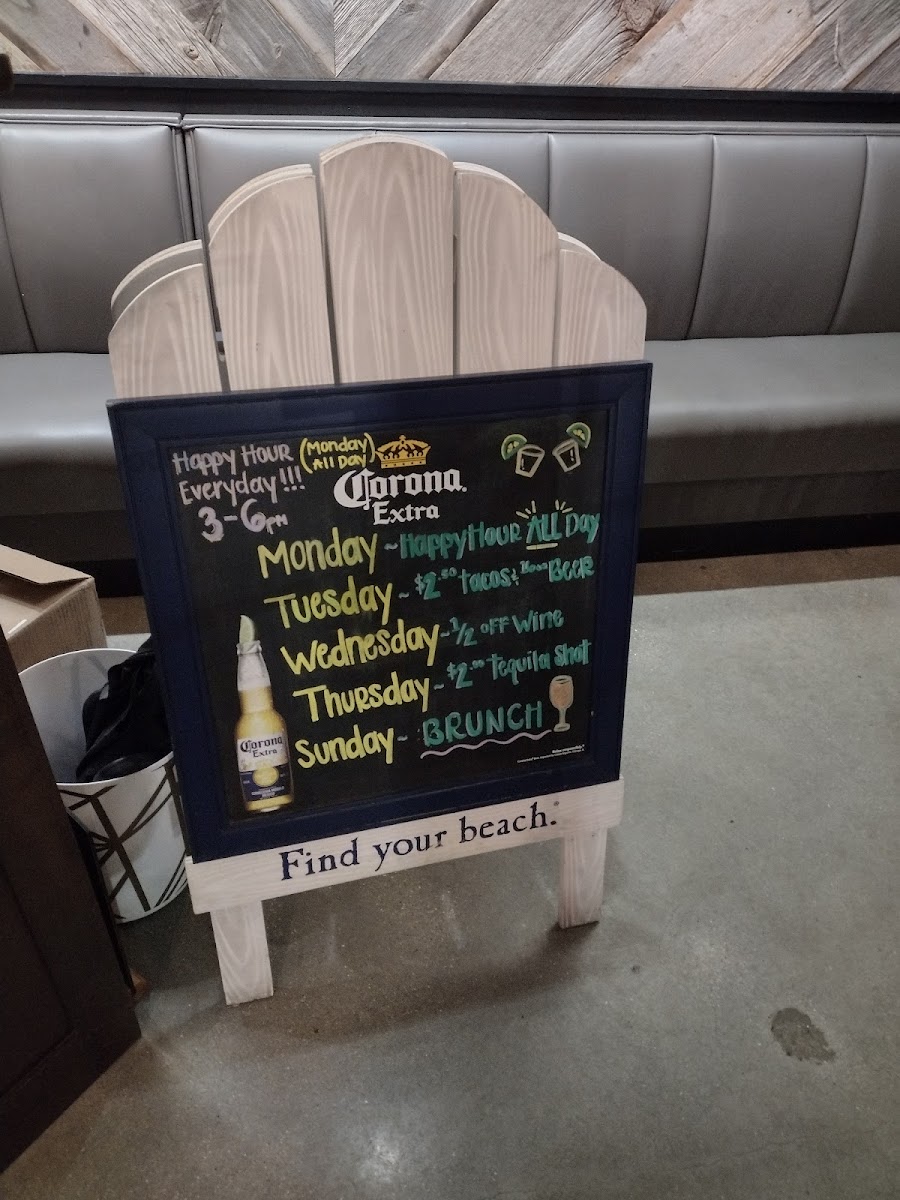 Happy Hour (Monday
All Day)
Everyday!!!
3-6pm
Corona.
Extra
Monday ~ Happy Hour ALL Day
Tuesday ~ $2.50 tacos & Beer
Wednesday ~ 1/2 off Wine
Thursday ~ $2.00 Tequila Shot
Sunday ~ BRUNCH
Corona
Extra
Relax responsibly.®
Find your beach.®